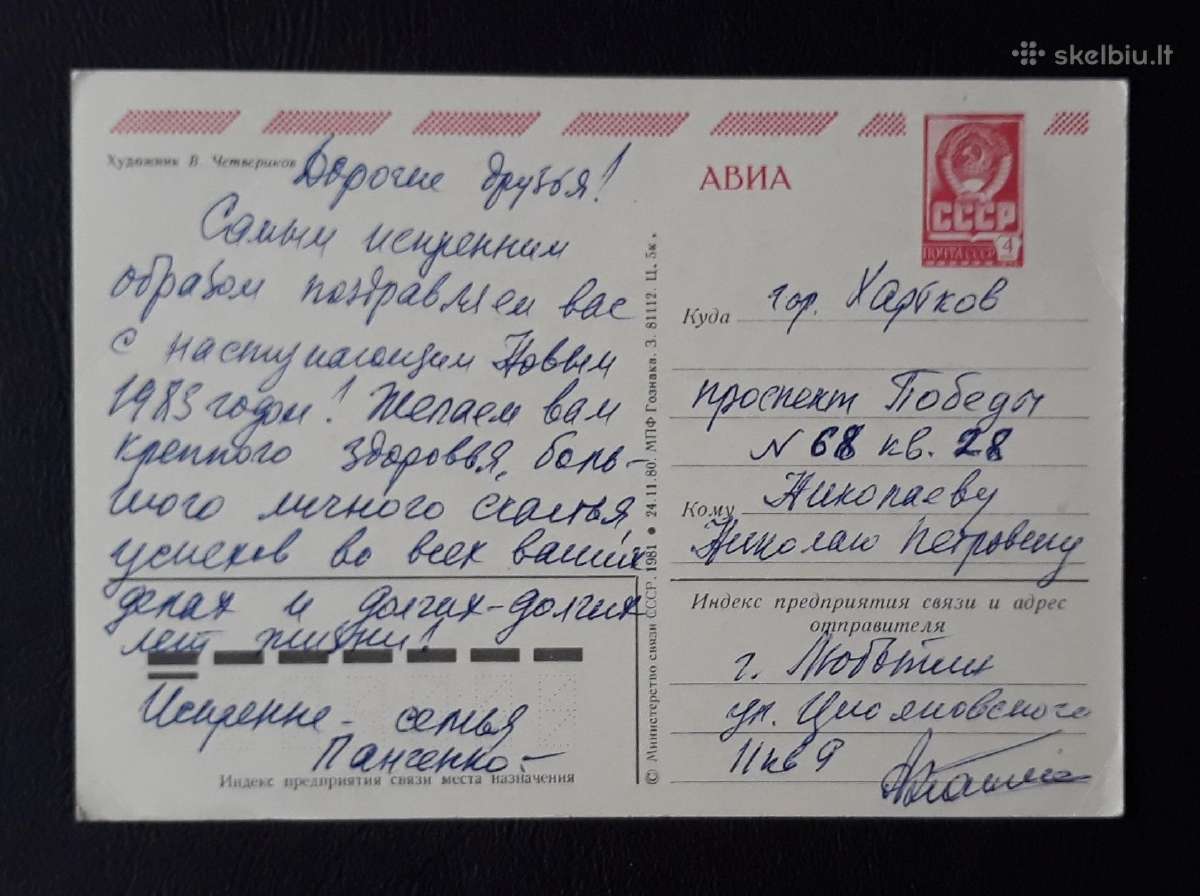 skelbiu.lt
Художник В. Четвериков
Дорогие друзья!
Самым искренним
образом поздравляем вас
с наступающим Новым
1983 годом! Желаем вам
крепкого здоровья, боль-
шого личного счастья,
успехов во всех ваших
делах и долгих-долгих
лет жизни!
Искренне - семья
Панченко.-
Индекс предприятия связи места назначения
© Министерство связи СССР. 1981 ● 24.11.80. МПФ Гознака. З. 81112. Ц. 5к.
АВИА
СССР
ПОЧТА СССР 4
Куда гор. Харьков
проспект Победы
N 68 кв. 28
Кому Николаеву
Николаю Петровичу
Индекс предприятия связи и адрес
отправителя
г. Люботин
ул.
11 кв 9